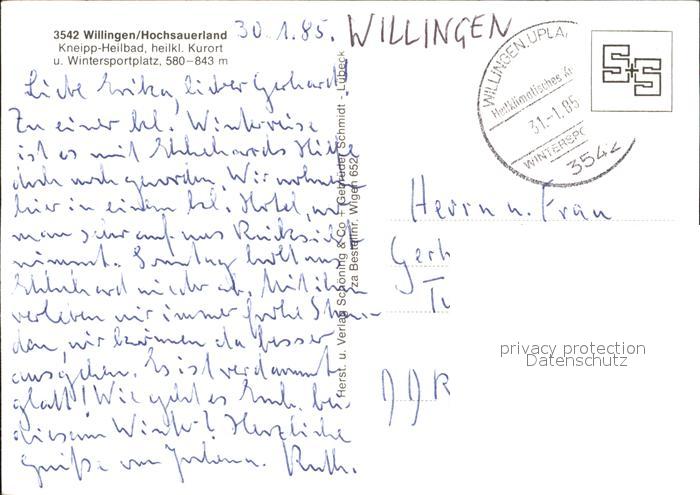 3542 Willingen/Hochsauerland
Kneipp-Heilbad, heilkl. Kurort
u. Wintersportplatz, 580–843 m
30.1.85. WILLINGEN
WILLINGEN, UPLA
Heilklimatisches K
31.-1.85
WINTERSPO
3542
S+S
Liebe Erika, lieber Gerhard
Zu einer kl. Winterreise
ist es mit Ekkehards Hilfe
doch noch geworden. Wir wohnen
hier in einem kl. Hotel, wo
man sehr auf uns Rücksicht
nimmt. Sonntag holt uns
Ekkehard wieder ab. Mit ihm
verleben wir immer frohe Stun-
den, wir können da besser
ausgehen. Es ist verdammt
glatt! Wie geht es Euch bei
diesem Winter? Herzliche
Grüße von Johann u. Ruth.
Herst. u. Verlag Schöning & Co + Gebrüder Schmidt - Lübeck
za Bestellnr. Wigen 652
Herrn u. Frau
Gerh
DDR
privacy protection
Datenschutz